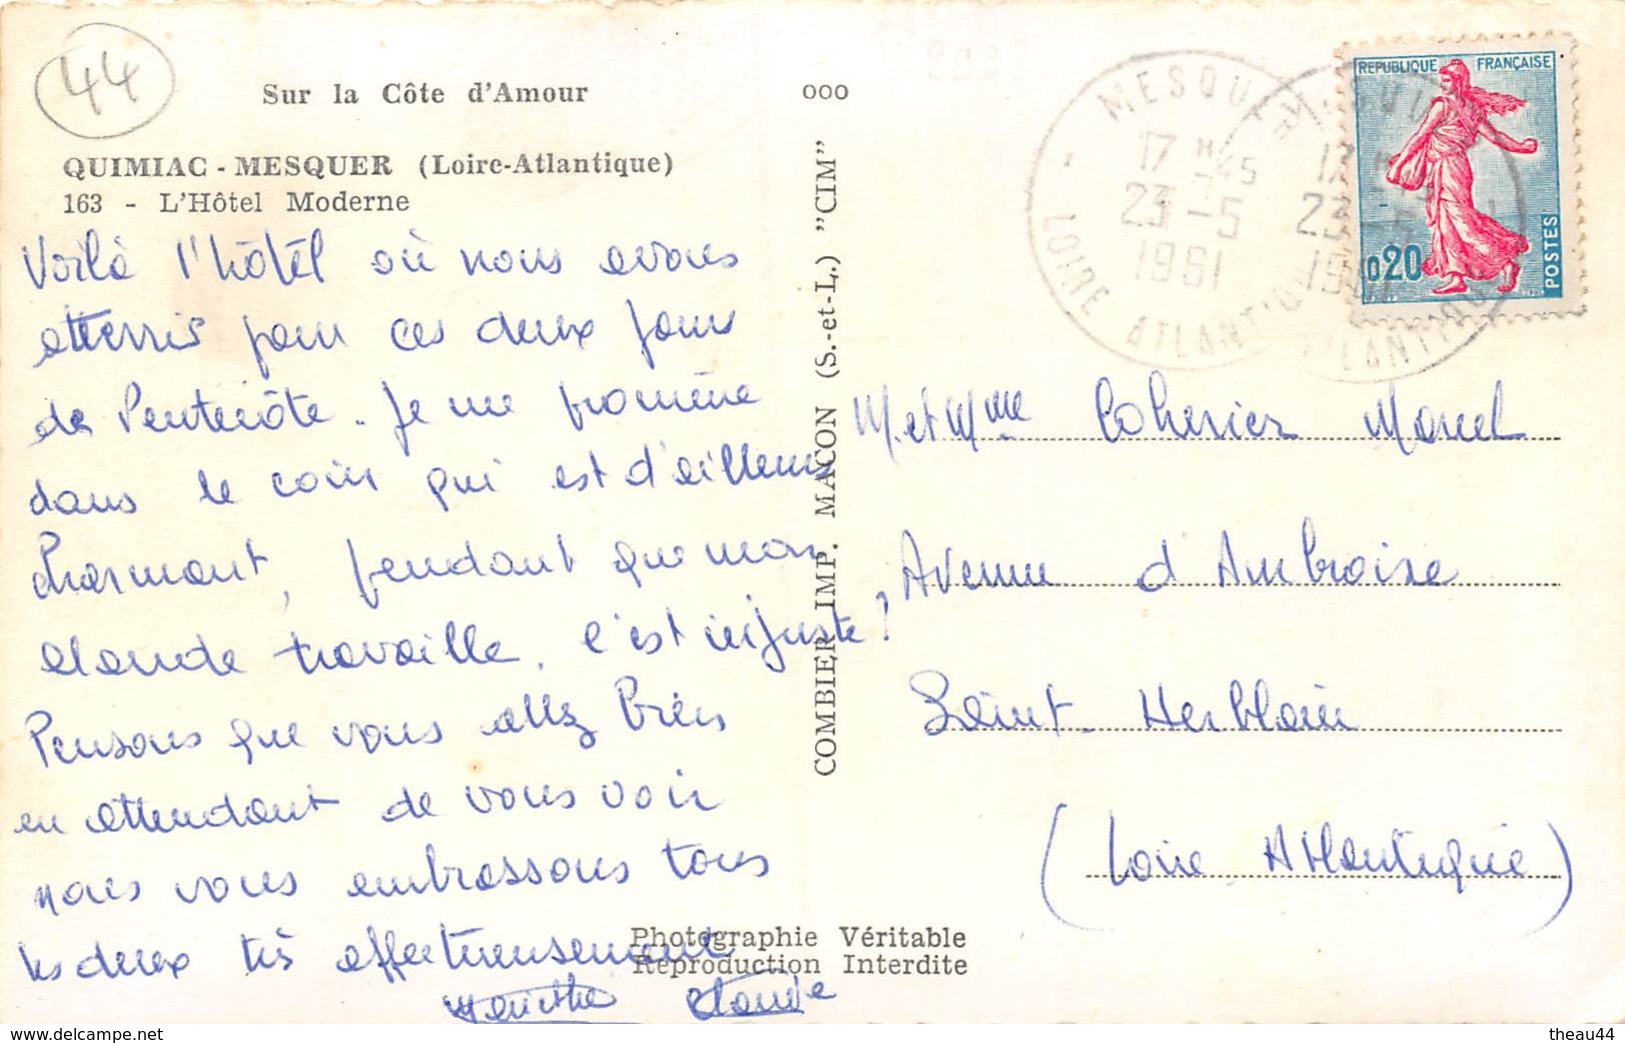 44
Sur la Côte d'Amour
QUIMIAC - MESQUER (Loire-Atlantique)
163 - L'Hôtel Moderne
Voilà l'hôtel où nous avons
atterris pour ces deux jours
de Pentecôte. Je me promène
dans le coin qui est d'ailleurs
charmant, pendant que mon
claude travaille. C'est injuste!
Pensons que vous allez bien
en attendant de vous voir
nous vous embrassons tous
les deux très affectueusement
Claude
000
COMBIER IMP. MACON (S.-et-L.) "CIM"
Photographie Véritable
Reproduction Interdite
MESQUER
17 H 45
23 -5
1961
LOIRE ATLANTIQUE
REPUBLIQUE FRANÇAISE
0,20
POSTES
M. et Mme Marcel
Avenue d'Ambroise
Saint-Herblain
(Loire Atlantique)
www.delcampe.net
theau44